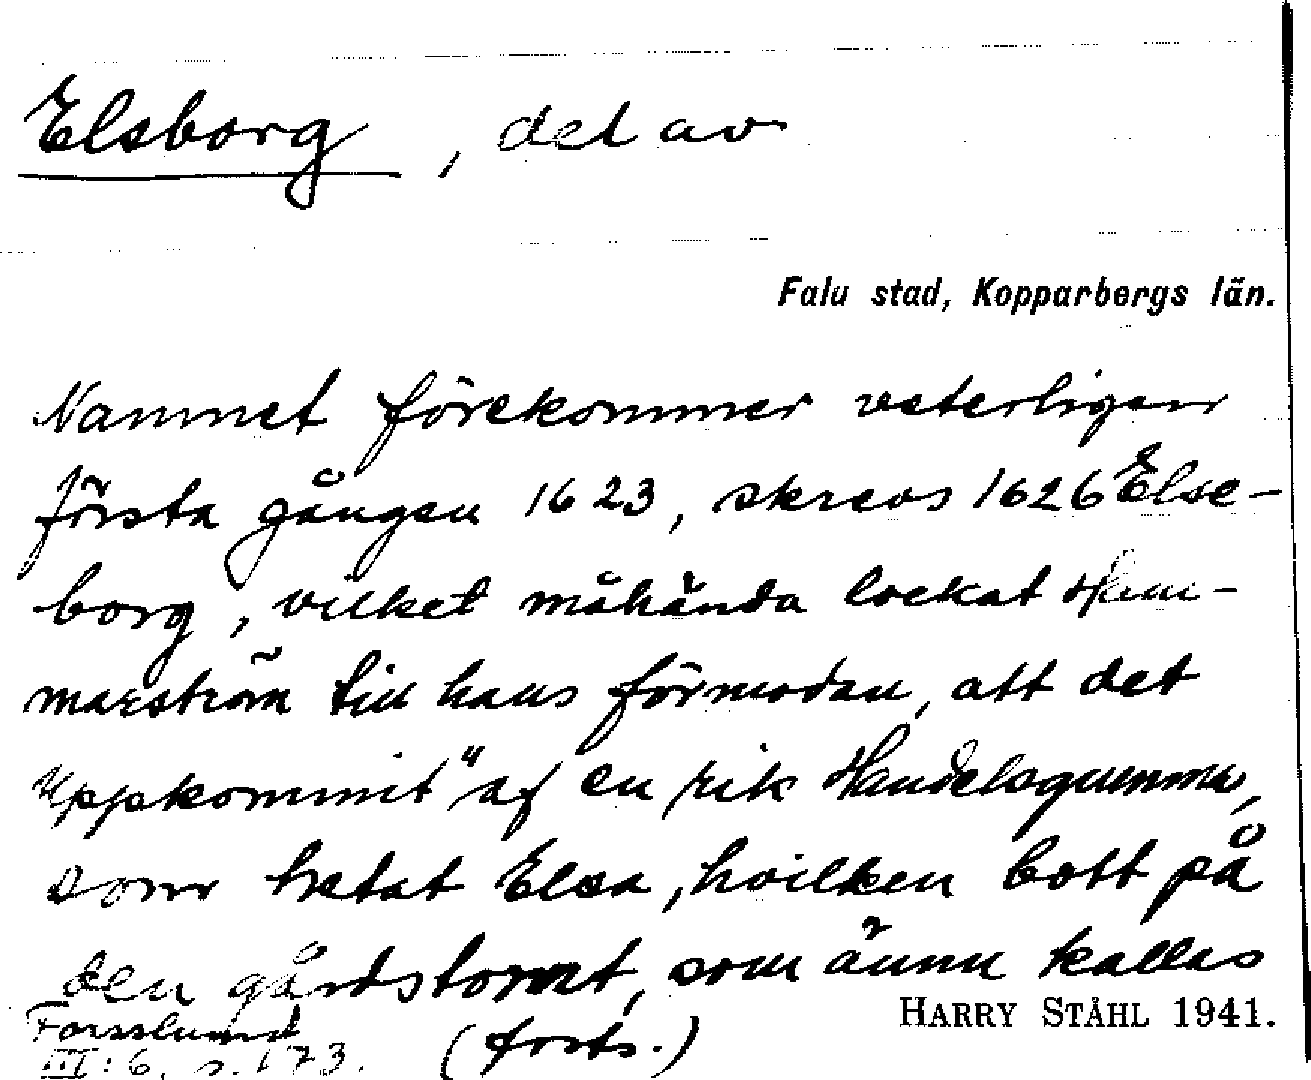 Elsborg, del av
Falu stad, Kopparbergs län.
Namnet förekommer veterligen
första gången 1623, skrevs 1626 Else-
borg, vilket måhända lockat Ham-
marström till hans förmodan, att det
uppkommit "af en rik Handelsgumma,
som hetat Elsa, hvilken bott på
den gårdstomt, som ännu kallas
HARRY STÅHL 1941.
Forsslund
III: 6, s. 173. (forts.)